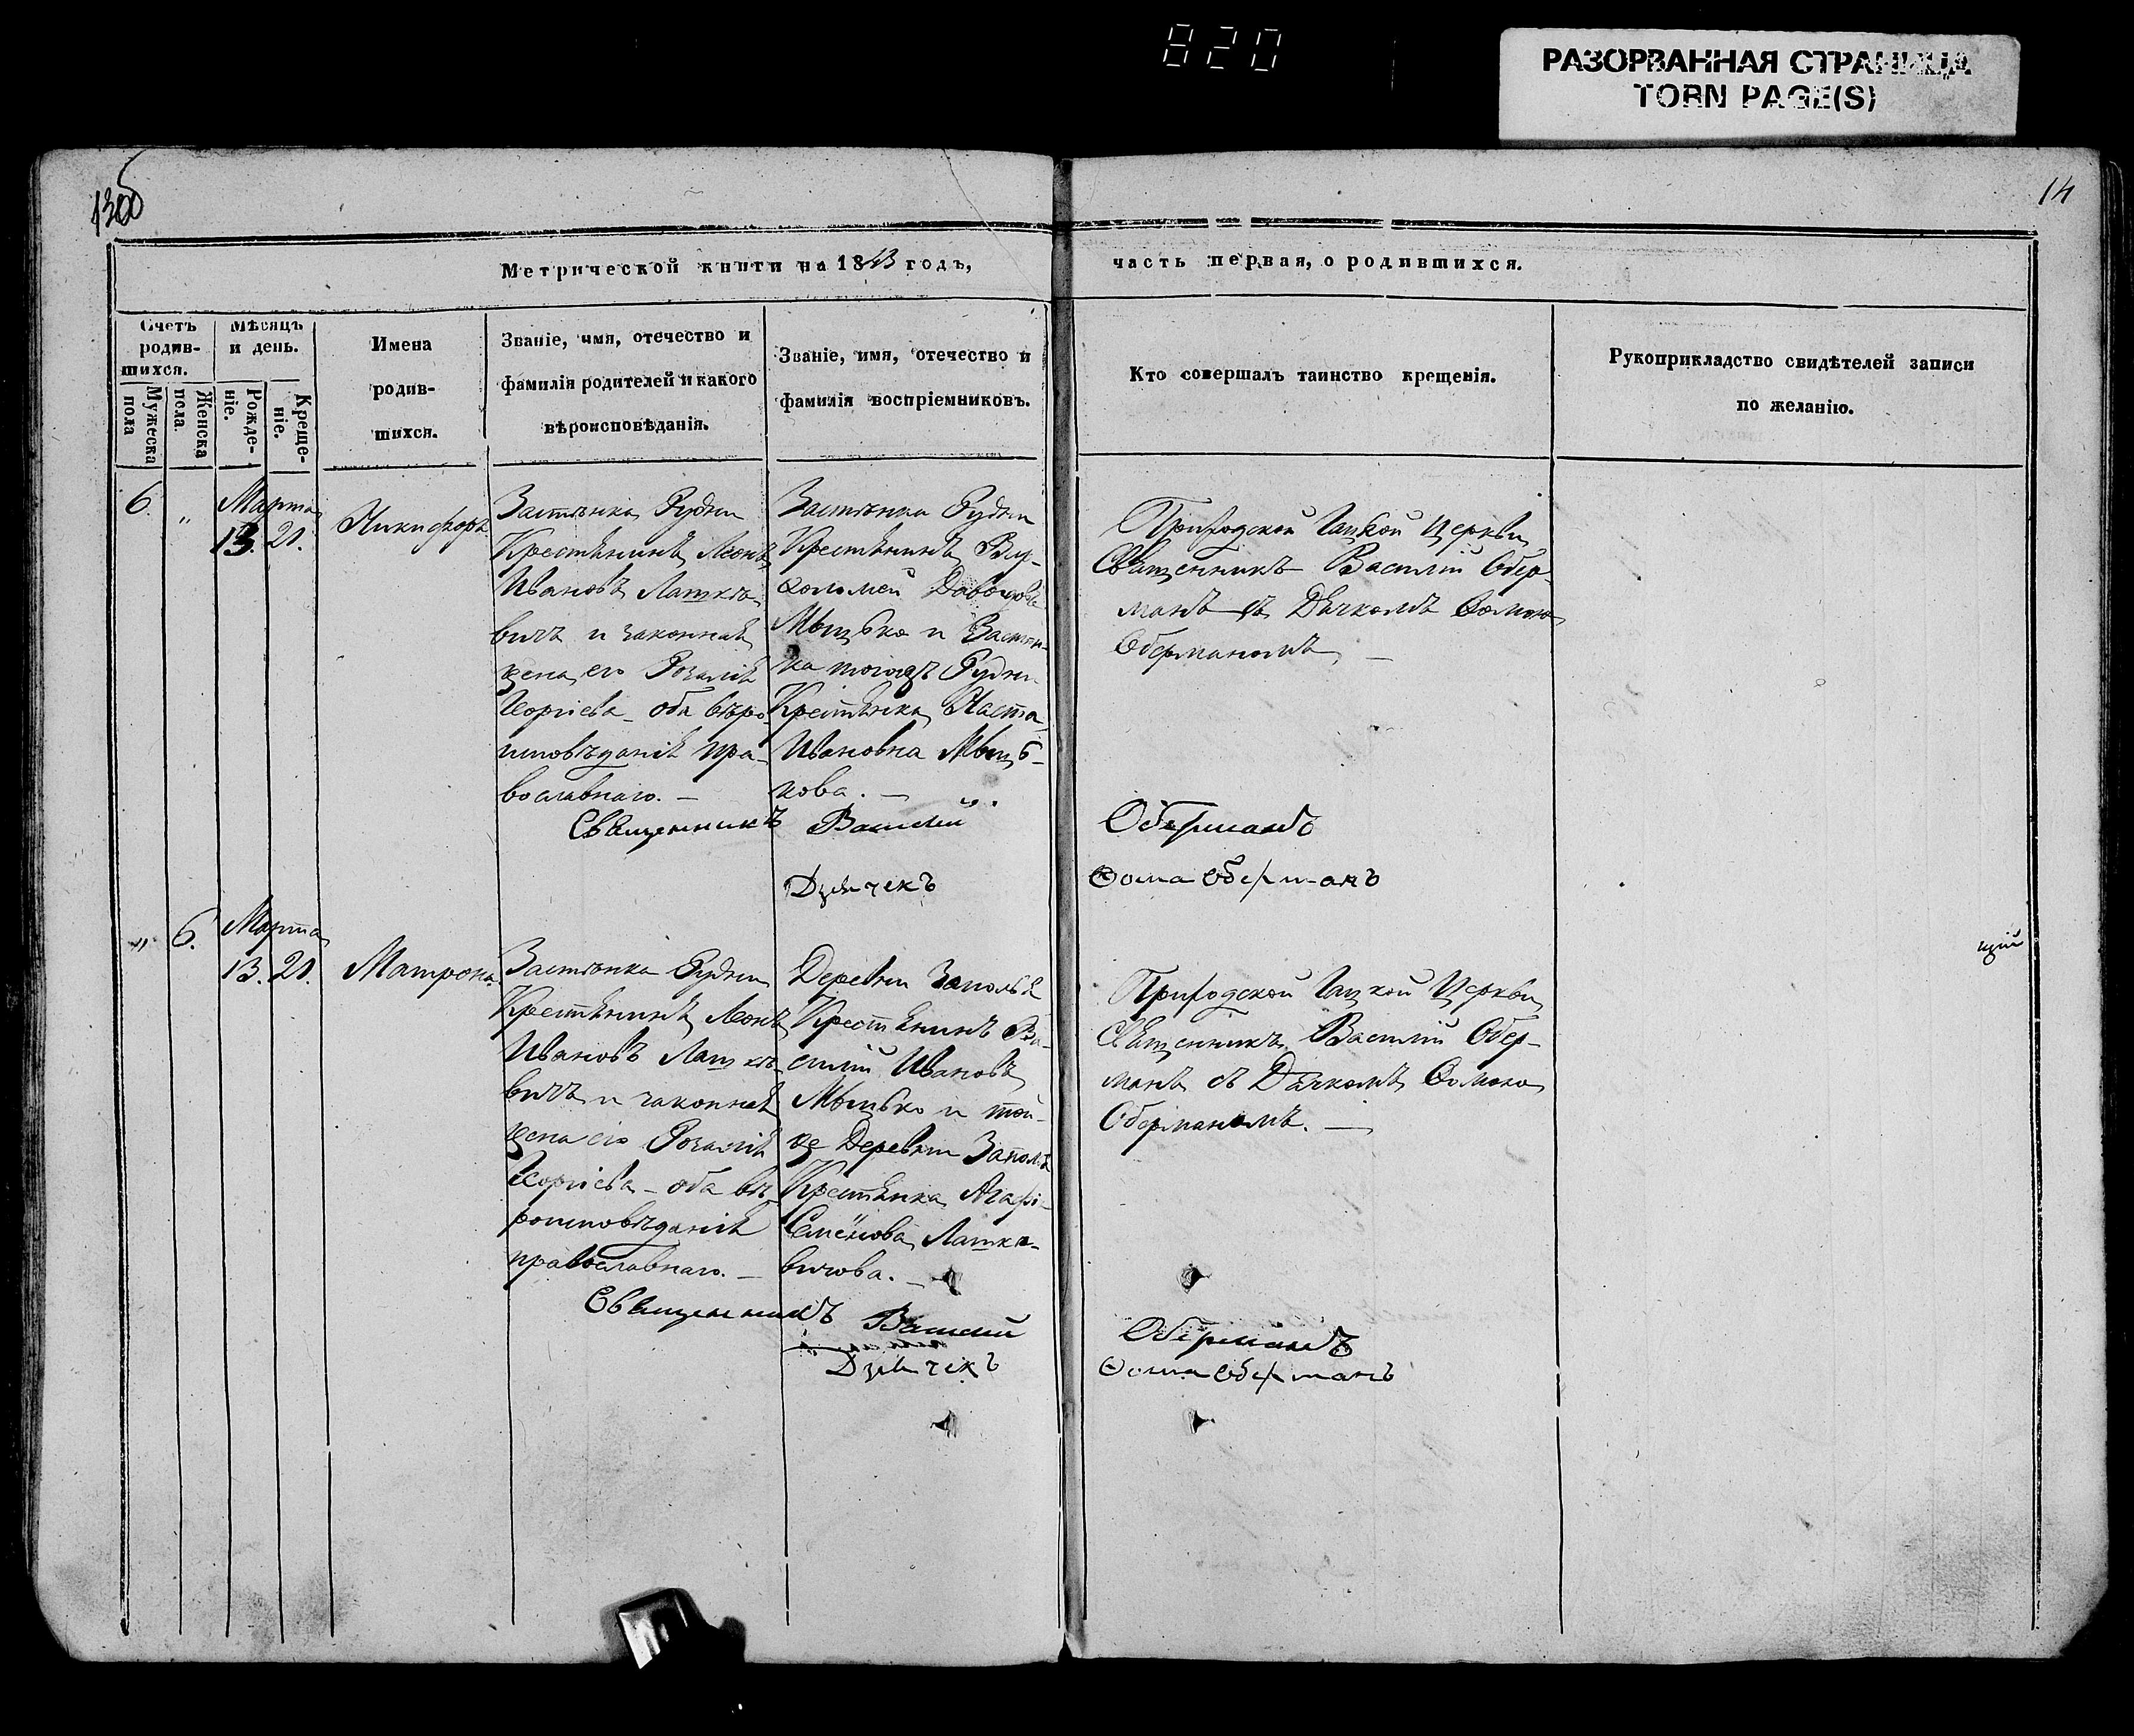 820
РАЗОРВАННАЯ СТРАНИЦА
TORN PAGE(S)
14
Метрической книги на 1843 годъ,
часть первая, о родившихся.
Счетъ родившихся.
Мужеска пола
Женска пола.
Мѣсяцъ и день.
Рожде-ніе.
Креще-ніе.
Имена
родив-
шихся.
Званіе, имя, отечество и
фамилія родителей и какого
вѣроисповѣданія.
Званіе, имя, отечество и
фамилія воспріемниковъ.
Кто совершалъ таинство крещенія.
Рукоприкладство свидѣтелей записи
по желанію.
6. „ Марта
13. 21.
Никифоръ
Застѣнка Рудни
Крестьянинъ Леонъ
Ивановъ Лашке-
вичъ и законная
жена его Розалія
Георгіева - оба вѣро-
исповѣданія пра-
вославнаго. —
Застѣнка Рудни
Крестьянинъ
Мыцько и Застѣн-
ка тогожъ Рудни
Крестьянка Наста
Ивановна Мыць-
кова. —
Приходской Гацкой Церкви
Священникъ Василій Обер-
манъ съ Дьячкомъ Ѳомою
Оберманомъ. —
Священникъ Василій Оберманъ
Дьячекъ Ѳома Оберманъ
„ 6. Марта
13. 21.
Матрона.
Застѣнка Рудни
Крестьянинъ Леонъ
Ивановъ Лашке-
вичъ и законная
жена его Розалія
Георгіева - оба вѣ-
роисповѣданія
православнаго. —
Деревни Заполья
Крестьянинъ Ва-
силій Ивановъ
Мыцько и той-
же Деревни Заполья
Крестьянка Агафі-
Семёнова Лашке-
вичова. —
Приходской Гацкой Церкви
Священникъ Василій Обер-
манъ съ Дьячкомъ Ѳомою
Оберманомъ. —
щій
Священникъ Василій Оберманъ
Дьячекъ Ѳома Оберманъ